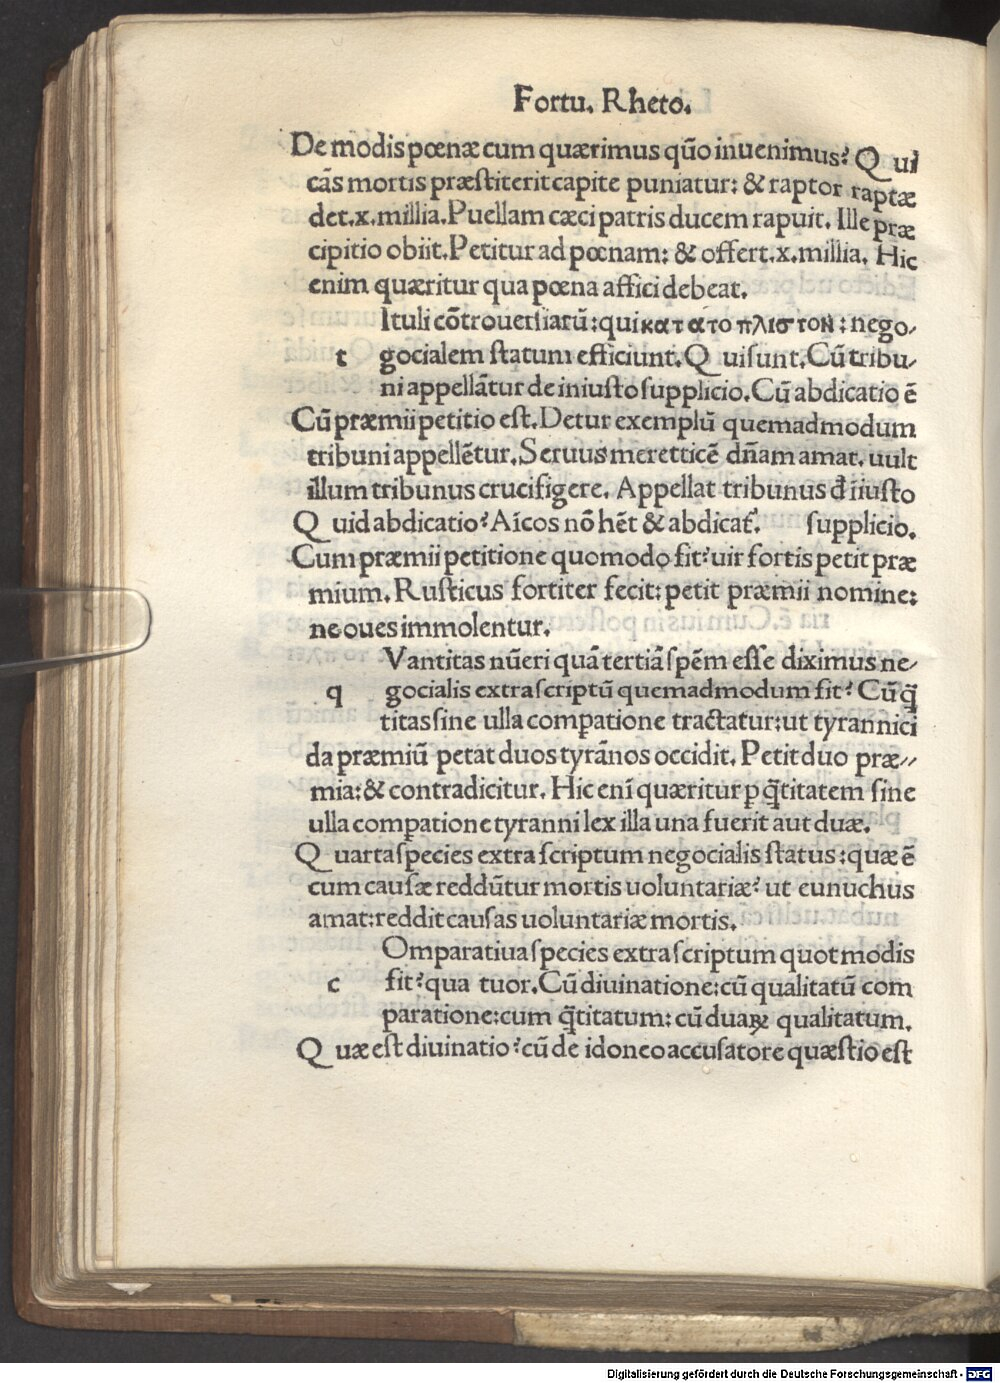 Fortu. Rheto.
De modis pœnæ cum quærimus quõ inuenimus? Qui
cãs mortis præstiterit capite puniatur: & raptor raptæ
det.x.millia.Puellam cæci patris ducem rapuit. Ille præ
cipitio obiit.Petitur ad pœnam: & offert.x.millia. Hic
enim quæritur qua pœna affici debeat.
Ituli cõtrouersiarũ:qui κατ ατο πλιστοΝ: nego-
t gocialem statum efficiunt.Q uisunt.Cũ tribu-
ni appellãtur de iniusto supplicio.Cũ abdicatio ẽ
Cũ præmii petitio est.Detur exemplũ quemadmodum
tribuni appellẽtur.Seruus meretticẽ dñam amat. uult
illum tribunus crucifigere. Appellat tribunus đ iiusto
Q uid abdicatio? Aícos nõ hẽt & abdicat̃. supplicio.
Cum præmii petitione quomodo fit?uir fortis petit præ
mium.Rusticus fortiter fecit:petit præmii nomine:
ne oues immolentur.
Vantitas nũeri quã tertiã spẽm esse diximus ne-
q gocialis extra scriptũ quemadmodum fit? Cũ q̃
titas sine ulla comꝑatione tractatur:ut tyrannici
da præmiũ petat duos tyrãnos occidit. Petit duo præ-
mia:& contradicitur. Hic eni quæritur ꝑ q̃titatem sine
ulla comꝑatione tyranni lex illa una fuerit aut duæ.
Q uarta species extra scriptum negocialis status:quæ ẽ
cum causæ reddũtur mortis uoluntariæ? ut eunuchus
amat:reddit causas uoluntariæ mortis.
Omparatiua species extra scriptum quot modis
c fit?qua tuor.Cũ diuinatione:cũ qualitatũ com
paratione:cum q̃titatum: cũ duaꝝ qualitatum.
Q uæ est diuinatio?cũ de idoneo accusatore quæstio est
Digitalisierung gefördert durch die Deutsche Forschungsgemeinschaft - DFG